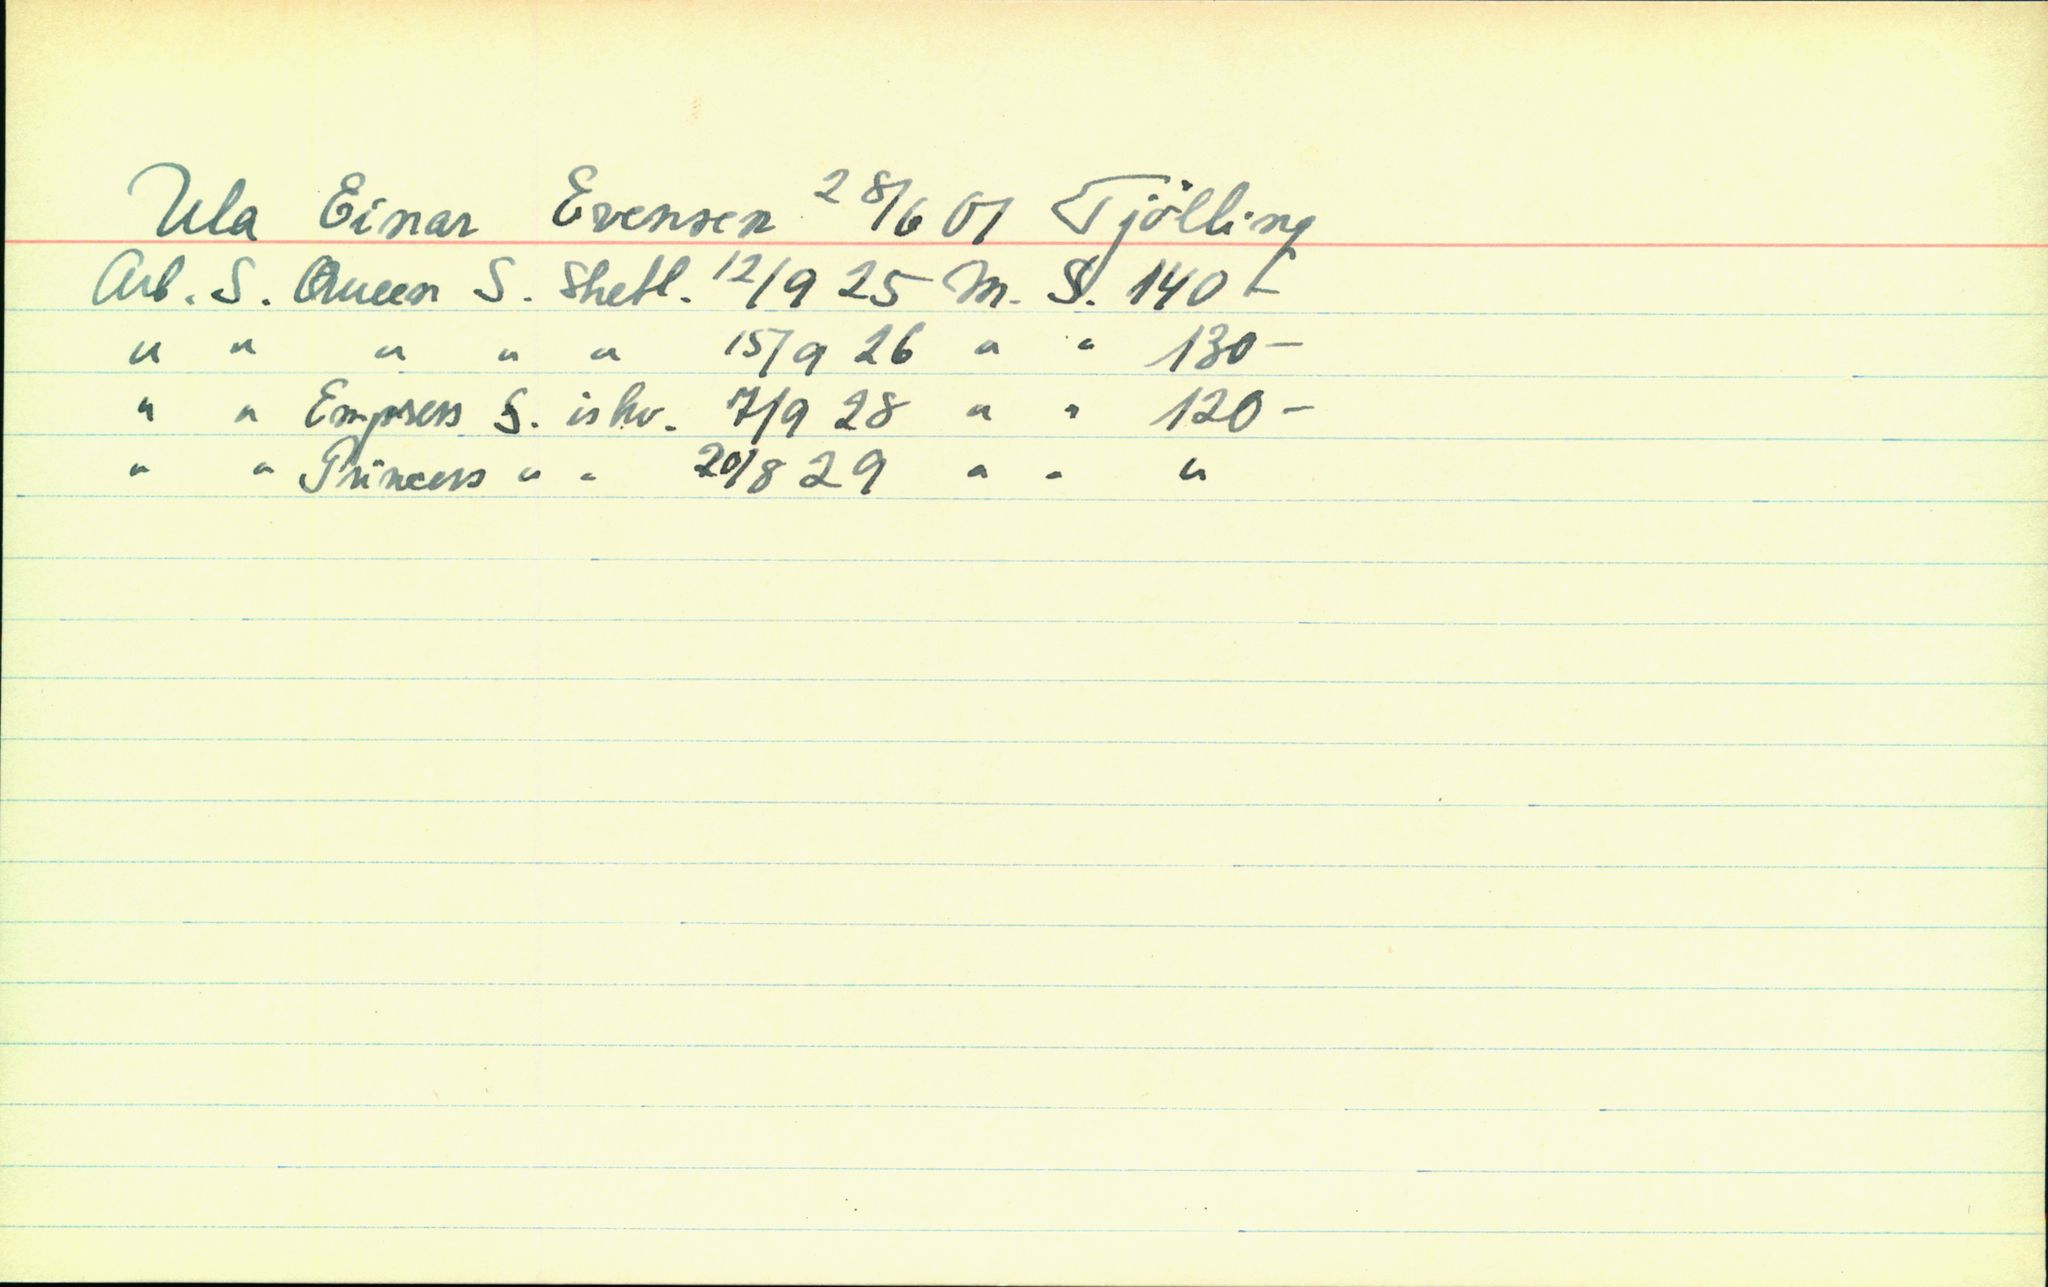 Ula Einar Evensen 28/6 01 Tjölling
Arb. S. Queen S. Shetl. 12/9 25 M. S. 140 -
" " " " " 15/9 26 " " 130 -
" " Empress S. ishv. 7/9 28 " " 120 -
" " Princess " " 20/8 29 " " "